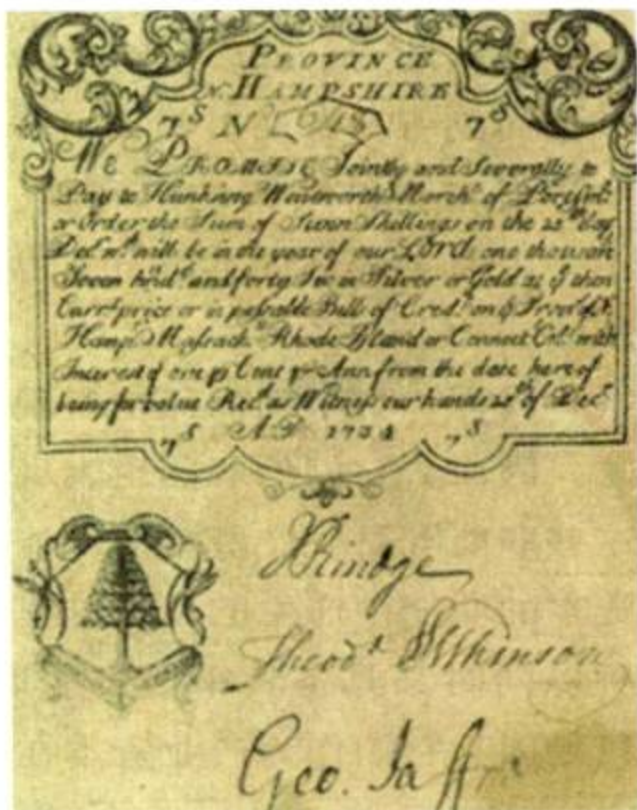 PROVINCE
N. HAMPSHIRE
7S N 7S
We PROMISE Jointly and Severally to
Pay to Hunking Wentworth March.t of
or Order the Sum of Seven Shillings on the 25th day
Dec.r wch will be in the year of our LORD one thousan
Seven hnd.d and forty in Silver or Gold at ye then
Curr.t price or in passable Bills of Cred.t on ye Prov.s of N
Hamp.r Massach.ts Rhode Island or Connect Col. with
Interest of one p Cent p Ann from the date here of
being for value Rec.d as Witness our hands 25th of Dec.r
7S AD 1734 7S
JRindge
Theod.r Atkinson
Geo. Jaffr